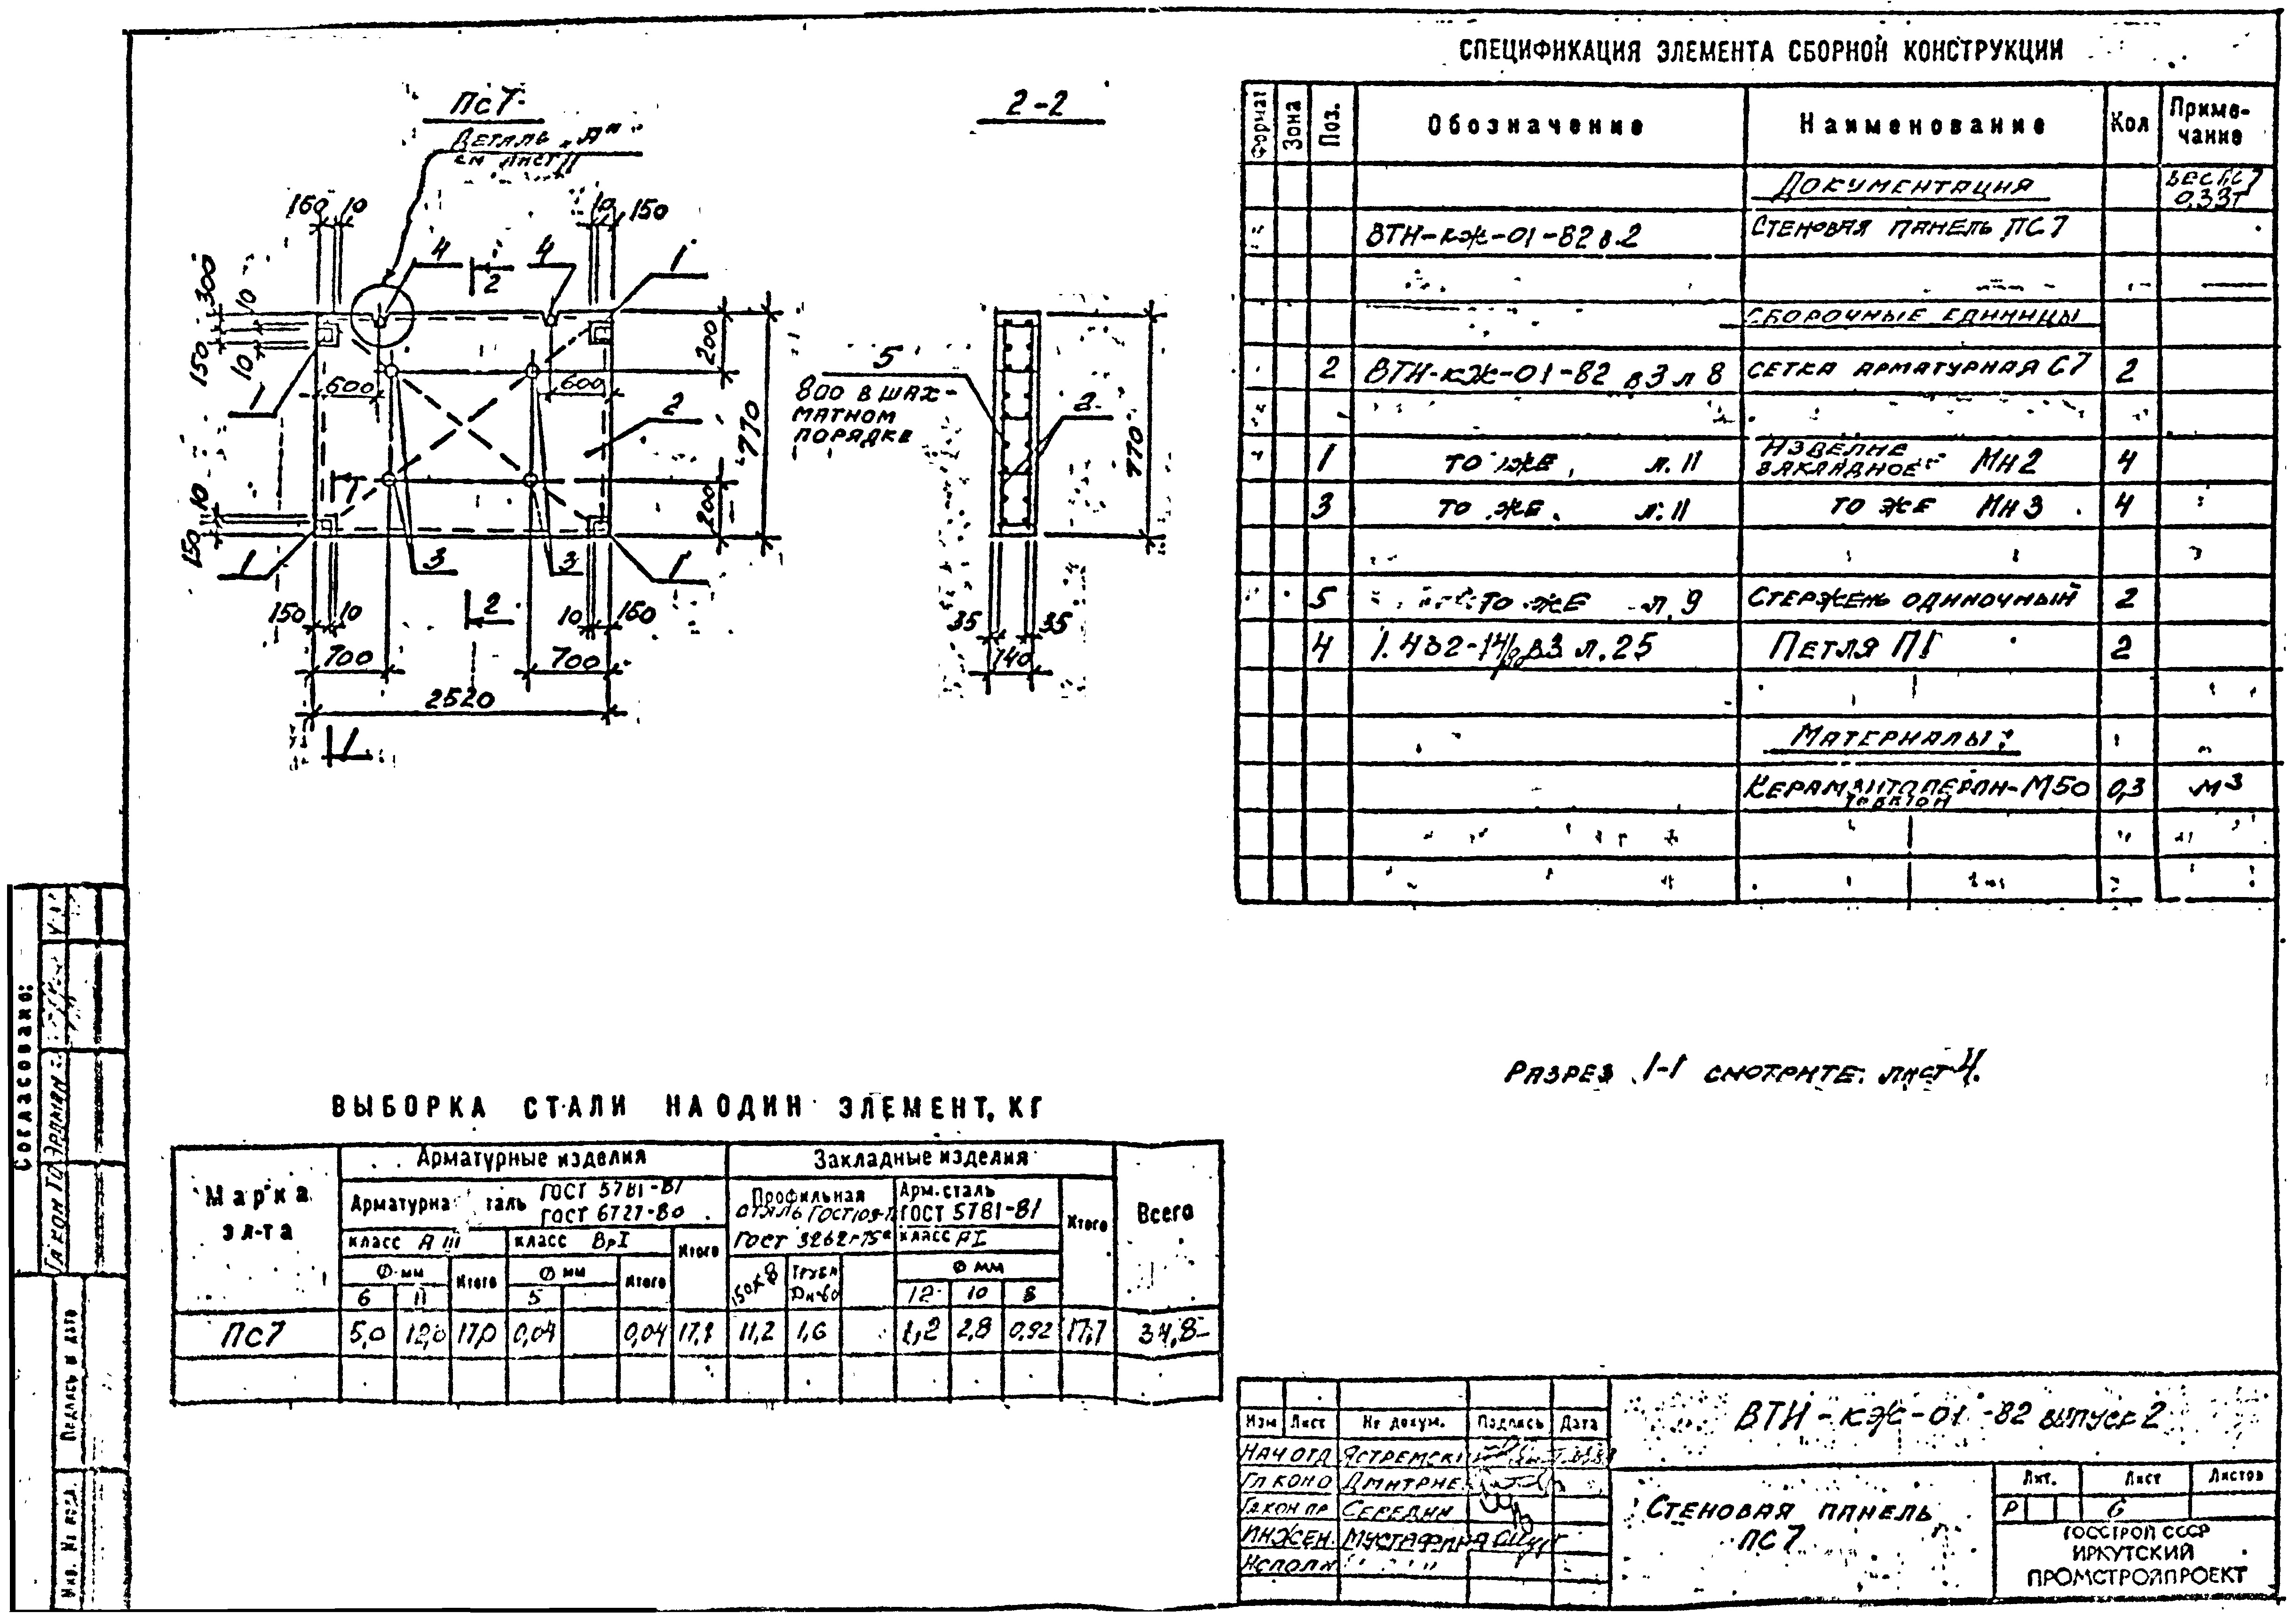 СПЕЦИФИКАЦИЯ ЭЛЕМЕНТА СБОРНОЙ КОНСТРУКЦИИ
Формат Зона Поз. Обозначение Наименование Кол Приме-
чание
Документация Вес ПС7
0,33т
ВТИ-КЖ-01-82 в.2 Стеновая панель ПС7
Сборочные единицы
2 ВТИ-КЖ-01-82 в3 л 8 Сетка арматурная С7 2
1 то же, л. 11 Изделие
закладное Мн2 4
3 то же, л. 11 то же Мн3 4
5 то же л, 9 Стержень одиночный 2
4 в3 л. 25 Петля П1 2
Материалы:
М50 0,3 м3
ПС7
Деталь „А"
см лист 11
160 10 10 150
4 4 1
2
300 10
150 10
1
600 600
200
770
2
10
150
200
1
1 3 3 1
150 10 2 10 160
700 700
2520
1
2-2
5
800 в шах-
матном
порядке
2
770
35 35
140
Разрез 1-1 смотрите лист 4.
ВЫБОРКА СТАЛИ НА ОДИН ЭЛЕМЕНТ, КГ
Марка
эл-та
Арматурные изделия Закладные изделия Всего
Арматурна таль ГОСТ 5781-81
ГОСТ 6727-80
Профильная
сталь ГОСТ 103-
ГОСТ 3262-75*
Арм. сталь
ГОСТ 5781-81
класс АI
Итого
класс А III класс ВрI Итого
Ф мм Итого Ф мм Итого 150х8 Труба Ф мм
6 11 5 12 10 8
ПС7 5,0 12,0 17,0 0,04 0,04 17,1 11,2 1,6 1,2 2,8 0,92 17,7 34,8
Согласовано:
Подпись и дата
Инв. № подл.
Изм Лист № докум. Подпись Дата
Нач отд Ястремск
Гл конс Дмитрие
Гл кон пр Середин
Инжен. Мустафина
Исполн
ВТИ-КЖ-01-82 выпуск 2
Стеновая панель
ПС7
Лит. Лист Листов
Р 6
ГОССТРОЙ СССР
ИРКУТСКИЙ
ПРОМСТРОЙПРОЕКТ